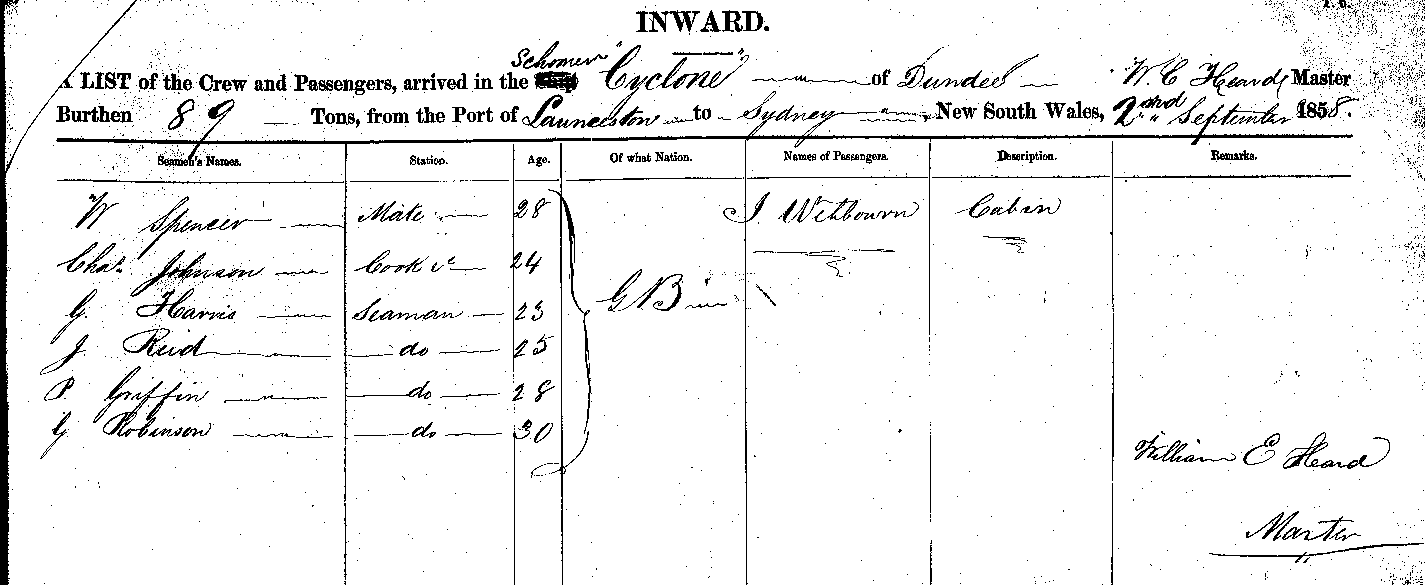 INWARD.
Schooner
A LIST of the Crew and Passengers, arrived in the "Cyclone" of Dundee W E Heard Master
Burthen 89 Tons, from the Port of Launceston to Sydney New South Wales, 2nd September 1858.
Seamen's Names. Station. Age. Of what Nation. Names of Passengers. Description. Remarks.
W Spencer Mate 28 J. Welbourn Cabin
Chas. Johnson Cook &c 24
G. Harris Seaman 23 G B
J. Reid do 25
P. Griffin do 28
G Robinson do 30
William E Heard
Master